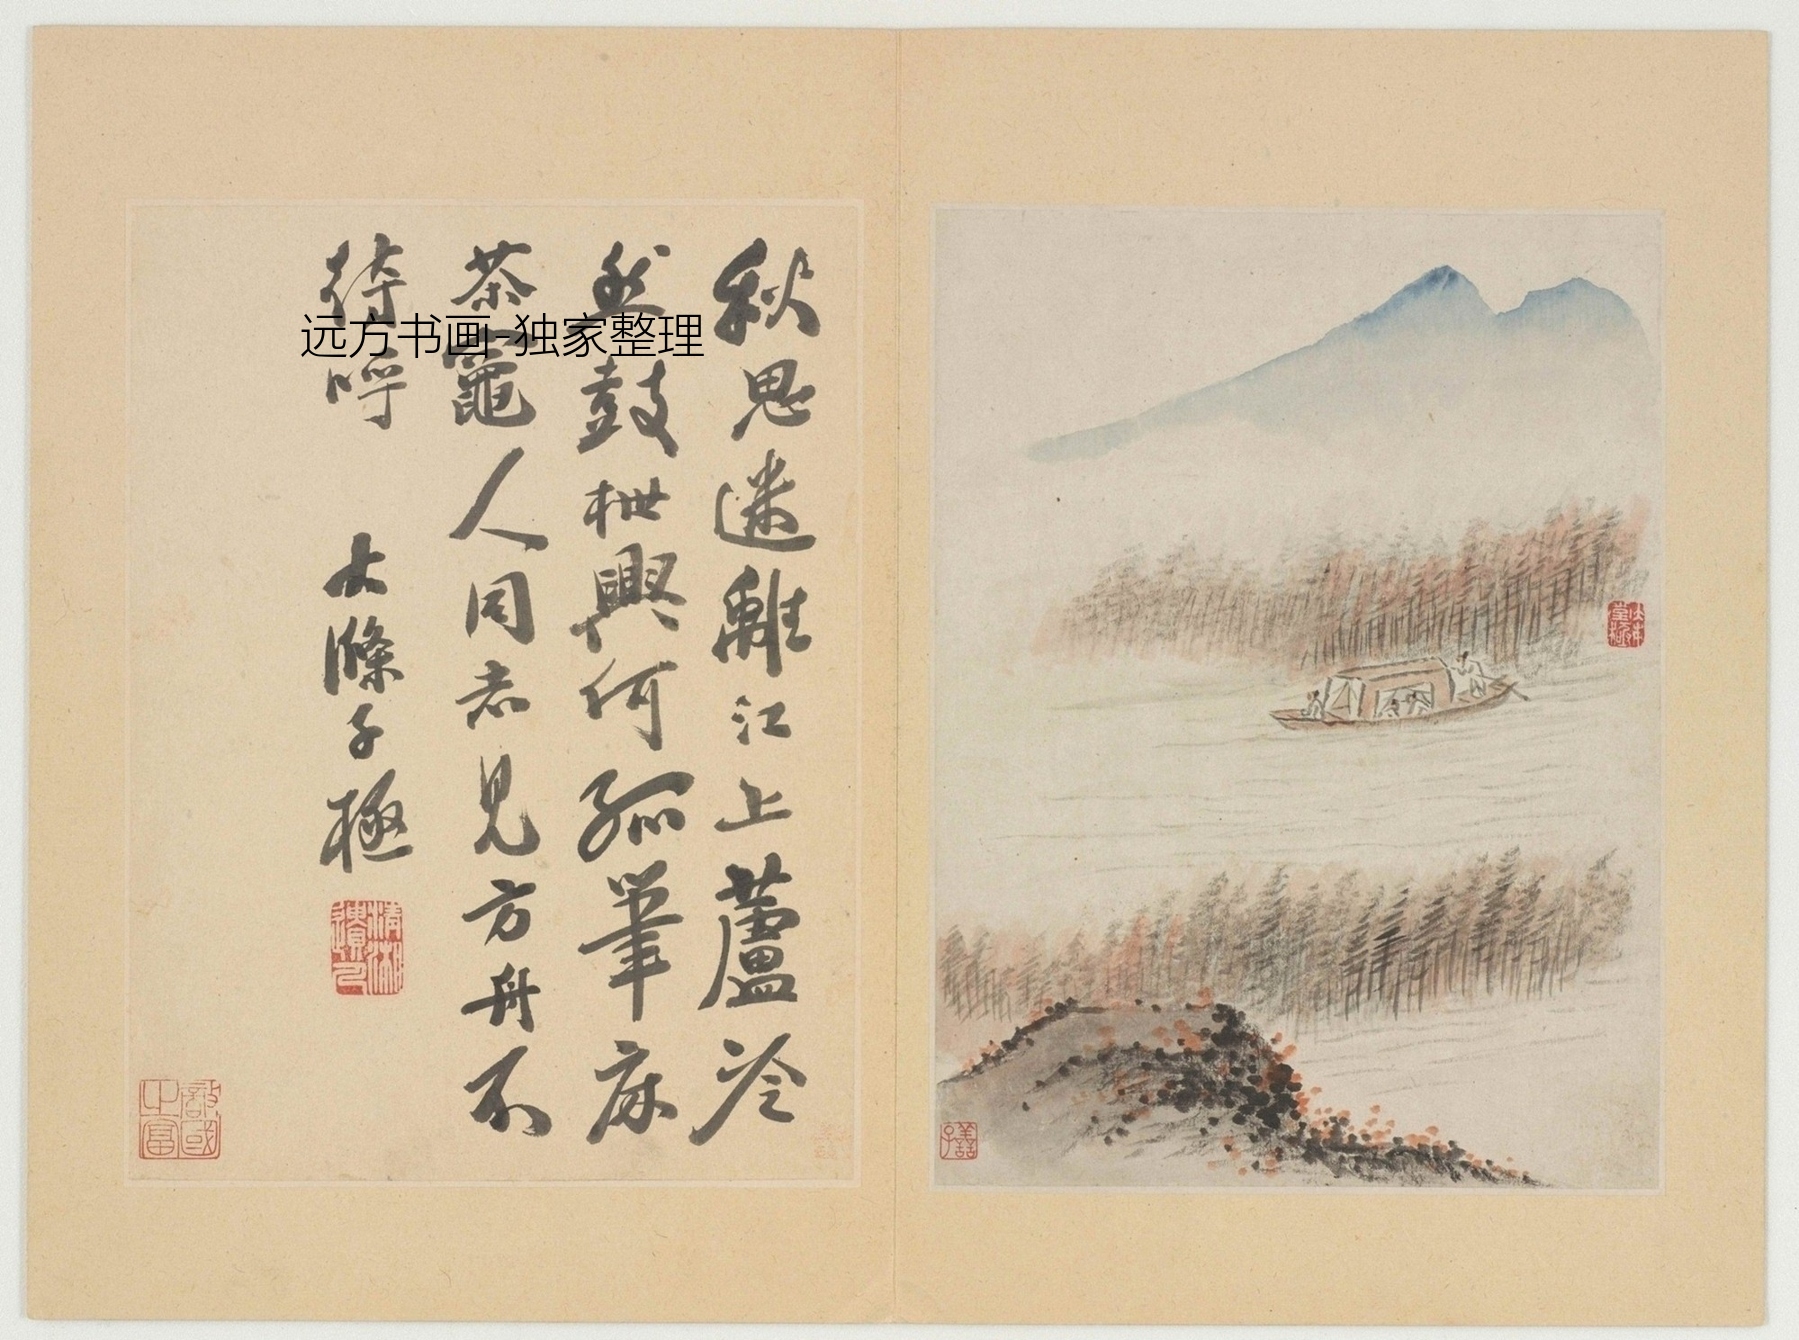 秋思迷離江上蘆冷
然鼓枻興何孤筆床
茶竈人同志見方舟不
待呼 大滌子極
敵國之富
远方书画-独家整理